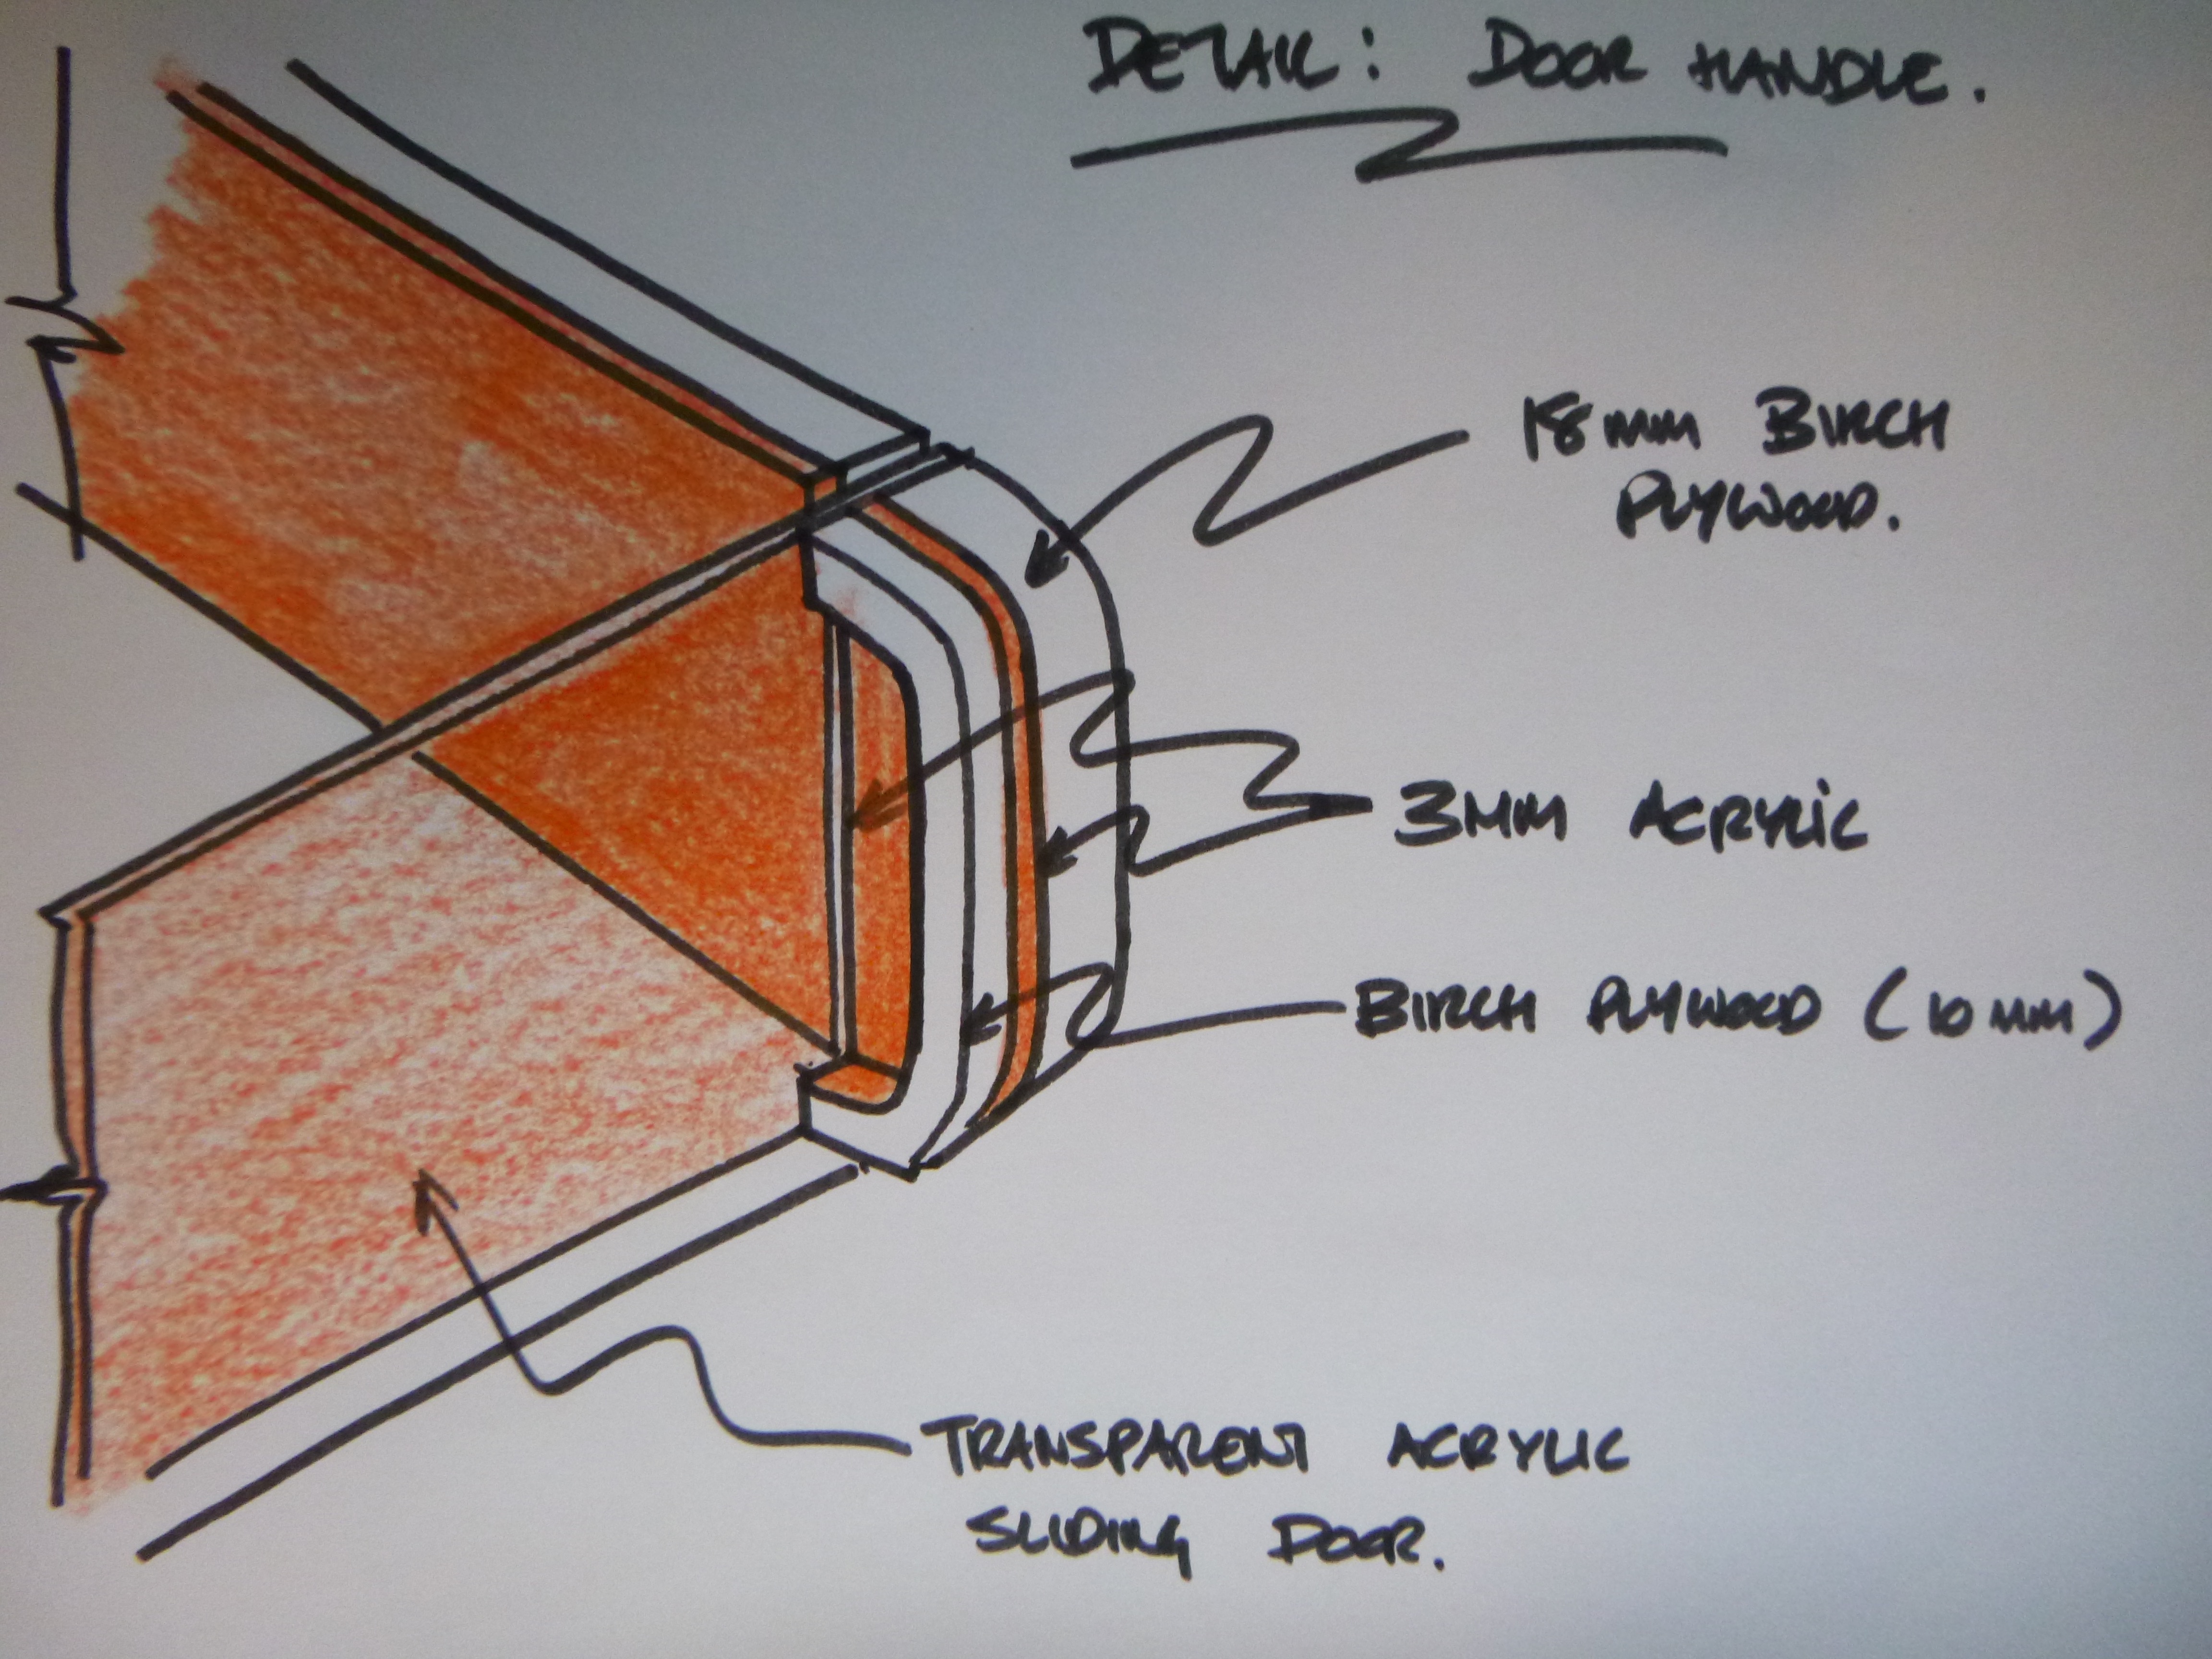 DETAIL: DOOR HANDLE.
18mm BIRCH
PLYWOOD.
3mm ACRYLIC
BIRCH PLYWOOD (10mm)
TRANSPARENT ACRYLIC
SLIDING DOOR.